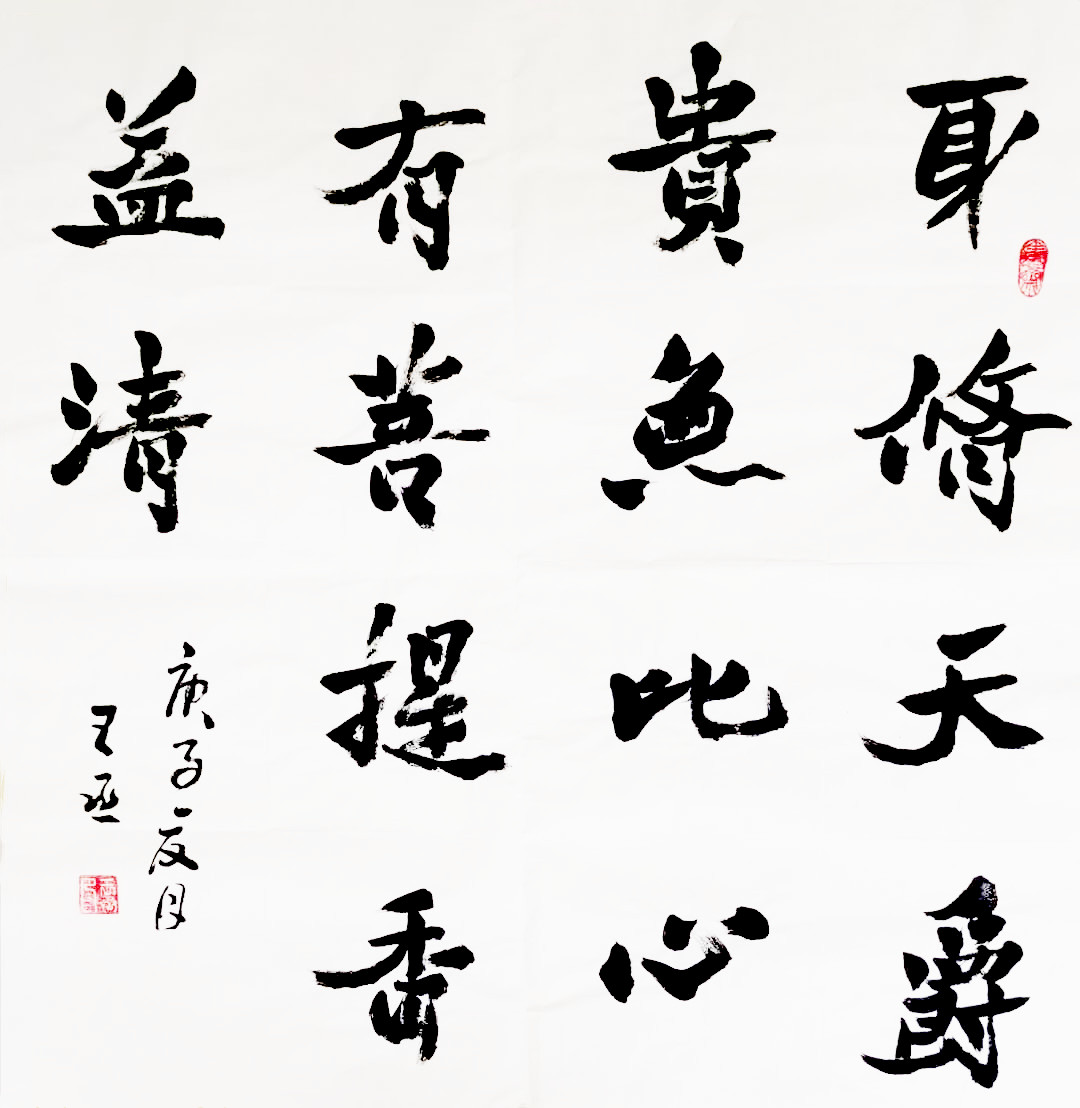 身脩天爵
貴無比心
有菩提香
益清
庚子夏月
王丞